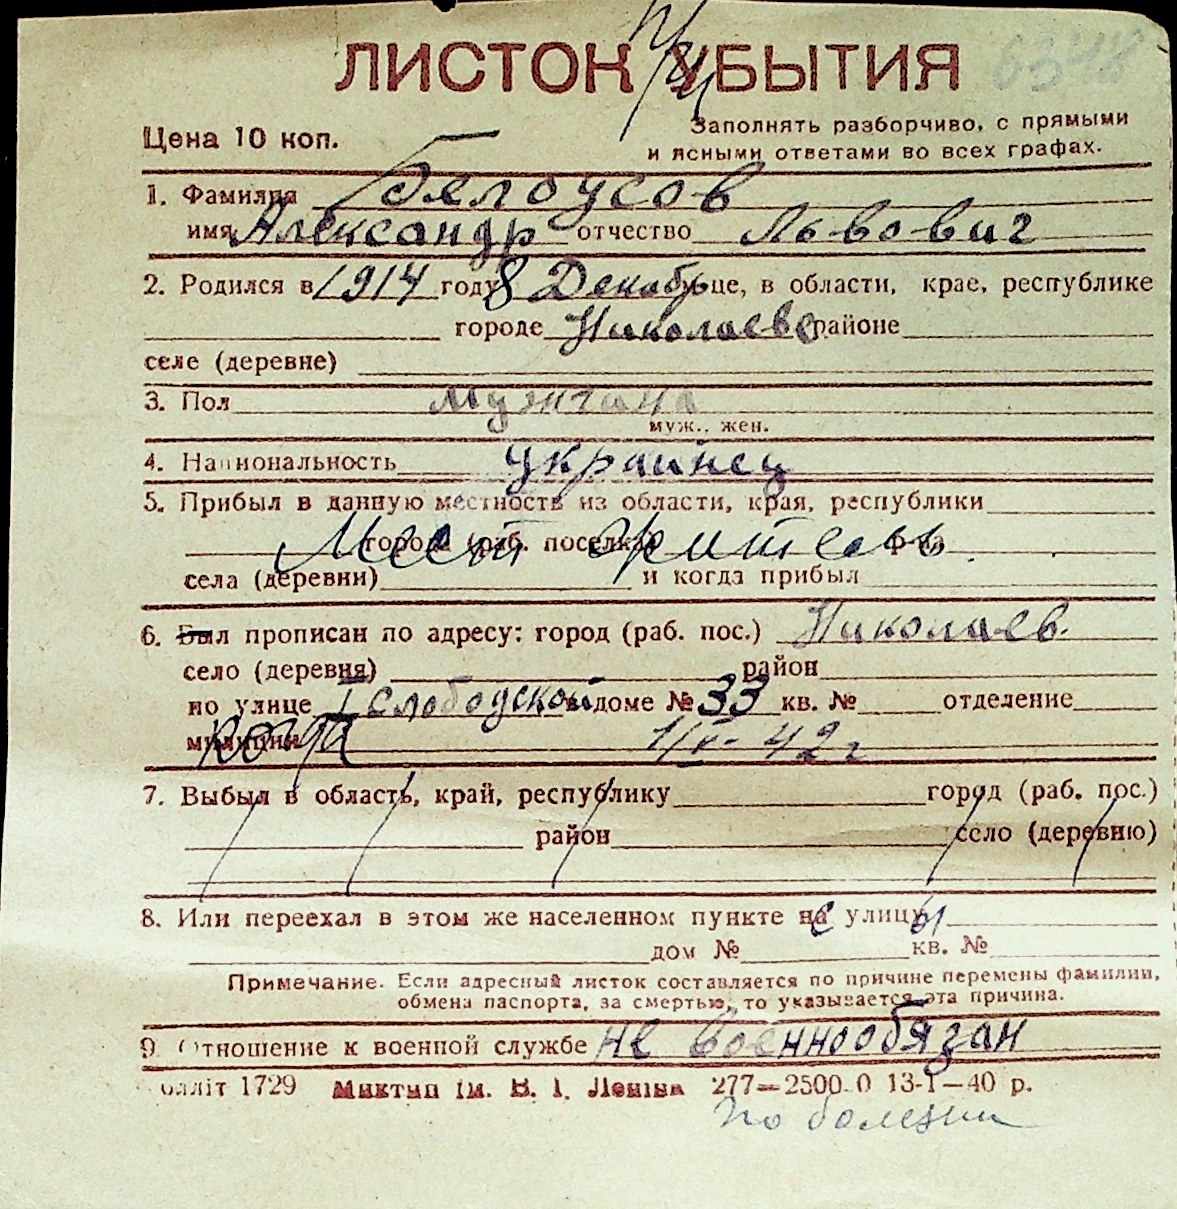 ЛИСТОК УБЫТИЯ 6348
Цена 10 коп.
Заполнять разборчиво, с прямыми
и ясными ответами во всех графах.
1. Фамилия Белоусов
имя Александр отчество Львович
2. Родился в 1914 году 8 Декабр м-це, в области, крае, республике
городе Николаеве районе
селе (деревне)
3. Пол мужчина
муж., жен.
4. Национальность украинец
5. Прибыл в данную местность из области, края, республики
города (раб. поселка) р-на
Мест житель.
села (деревни) и когда прибыл
6. Был прописан по адресу: город (раб. пос.) Николаев.
село (деревня) район
по улице Слободской в доме № 33 кв. № отделение
милиции 1/IV-42 г
7. Выбыл в область, край, республику город (раб. пос.)
район село (деревню)
8. Или переехал в этом же населенном пункте на улицу
дом № кв. №
Примечание. Если адресный листок составляется по причине перемены фамилии,
обмена паспорта, за смертью, то указывается эта причина.
9. Отношение к военной службе не военнообязан
олліт 1729 Миктип ім. В. І. Леніна 277—2500.0 13-1—40 р.
по болезни